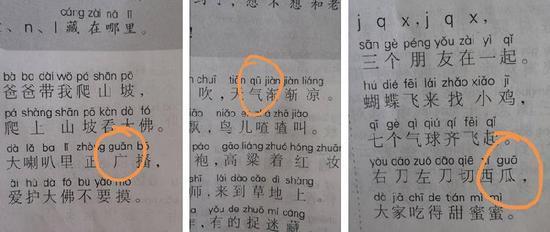 cáng zài nǎ lǐ
、n、l 藏在哪里。
bà ba dài wǒ pá shān pō
爸爸带我爬山坡,
pá shàng shān pō kàn dà fó
爬上山坡看大佛。
dà lǎ ba lǐ zhèng guǎn bō
大喇叭里正广播,
ài hù dà fó bú yào mō
爱护大佛不要摸。
想不想和老
chuī tiān qū jiàn jiàn liáng
吹,天气渐渐凉。
niǎo ér zhā zhā jiào
飘,鸟儿喳喳叫。
páo gāo liáng zhuó hóng zhuāng
袍,高粱着红妆
shī lái dào cǎo dì shàng
师,来到草地上。
yǒu de zhuō mí cáng
有的捉迷藏
j q x,j q x,
sān gè péng yǒu zài yì qǐ
三个朋友在一起。
hú dié fēi lái zhǎo xiǎo jī
蝴蝶飞来找小鸡,
qī gè qì qiú qí fēi qǐ
七个气球齐飞起。
yòu dāo zuǒ dāo qiē xī guā
右刀左刀切西瓜,
dà jiā chī de tián mì mì
大家吃得甜蜜蜜。